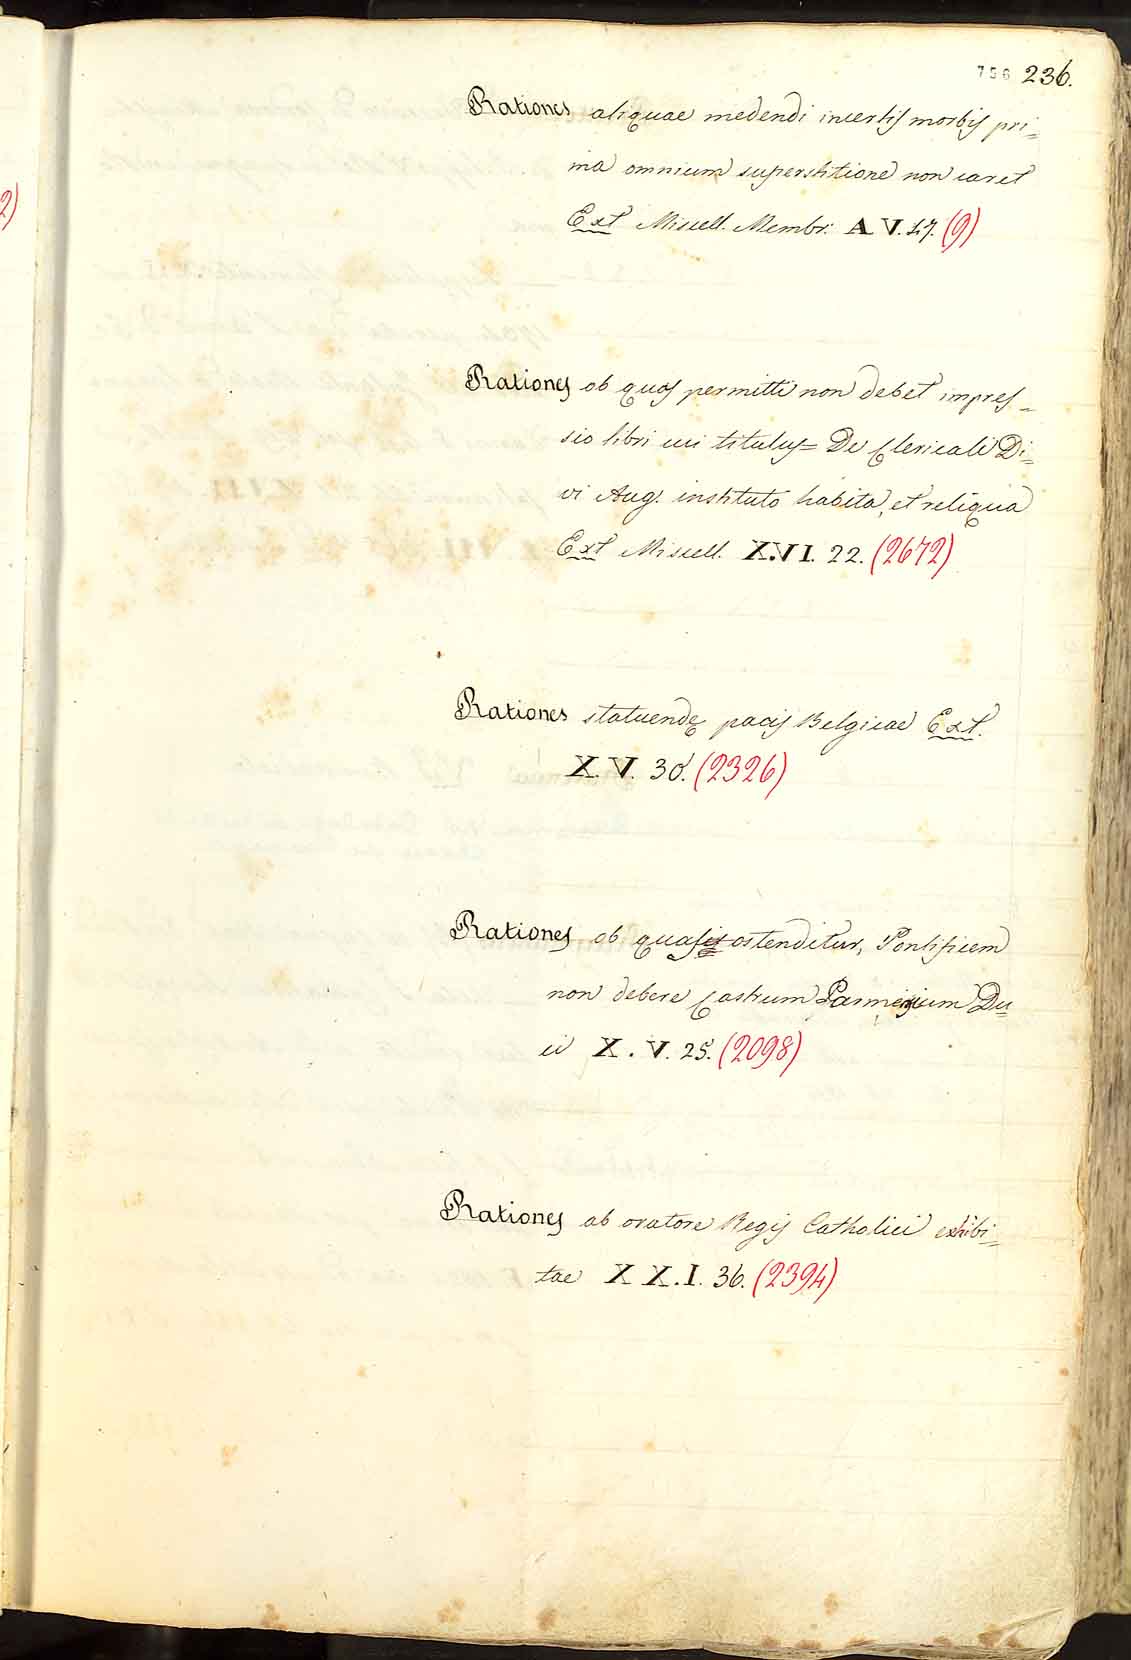 756 236.
2)
Rationes aliquae medendi incertis morbis pri=
ma omnium superstitione non caret
Ext Miscell. Membr. A V. 17. (9)
Rationes ob quas permitti non debet impres=
sio libri cui titulus= De Clericali Di=
vi Aug. instituto habita, et reliqua
Ext Miscell. X.VI. 22. (2672)
Rationes statuendę pacis Belgicae Ext.
X.V. 30. (2326)
Rationes ob quas ostenditur, Pontificem
non debere Castrum Parmensium Du=
ci X. V. 25. (2098)
Rationes ab oratore Regis Catholici exhibi=
tae X X.I. 36. (2394)